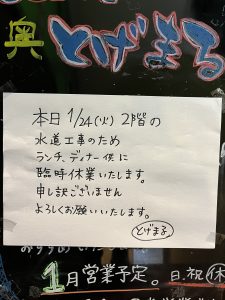 奥 とげまる
本日 1/24(火) 2階の
水道工事のため
ランチ、ディナー供に
臨時休業いたします。
申し訳ございません
よろしくお願いいたします。
とげまる
1月営業予定。日.祝休